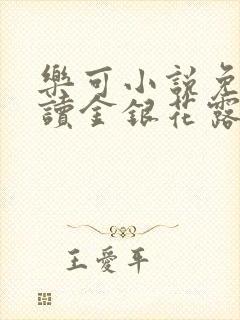 樂可小說免
讀金銀花露
王愛平